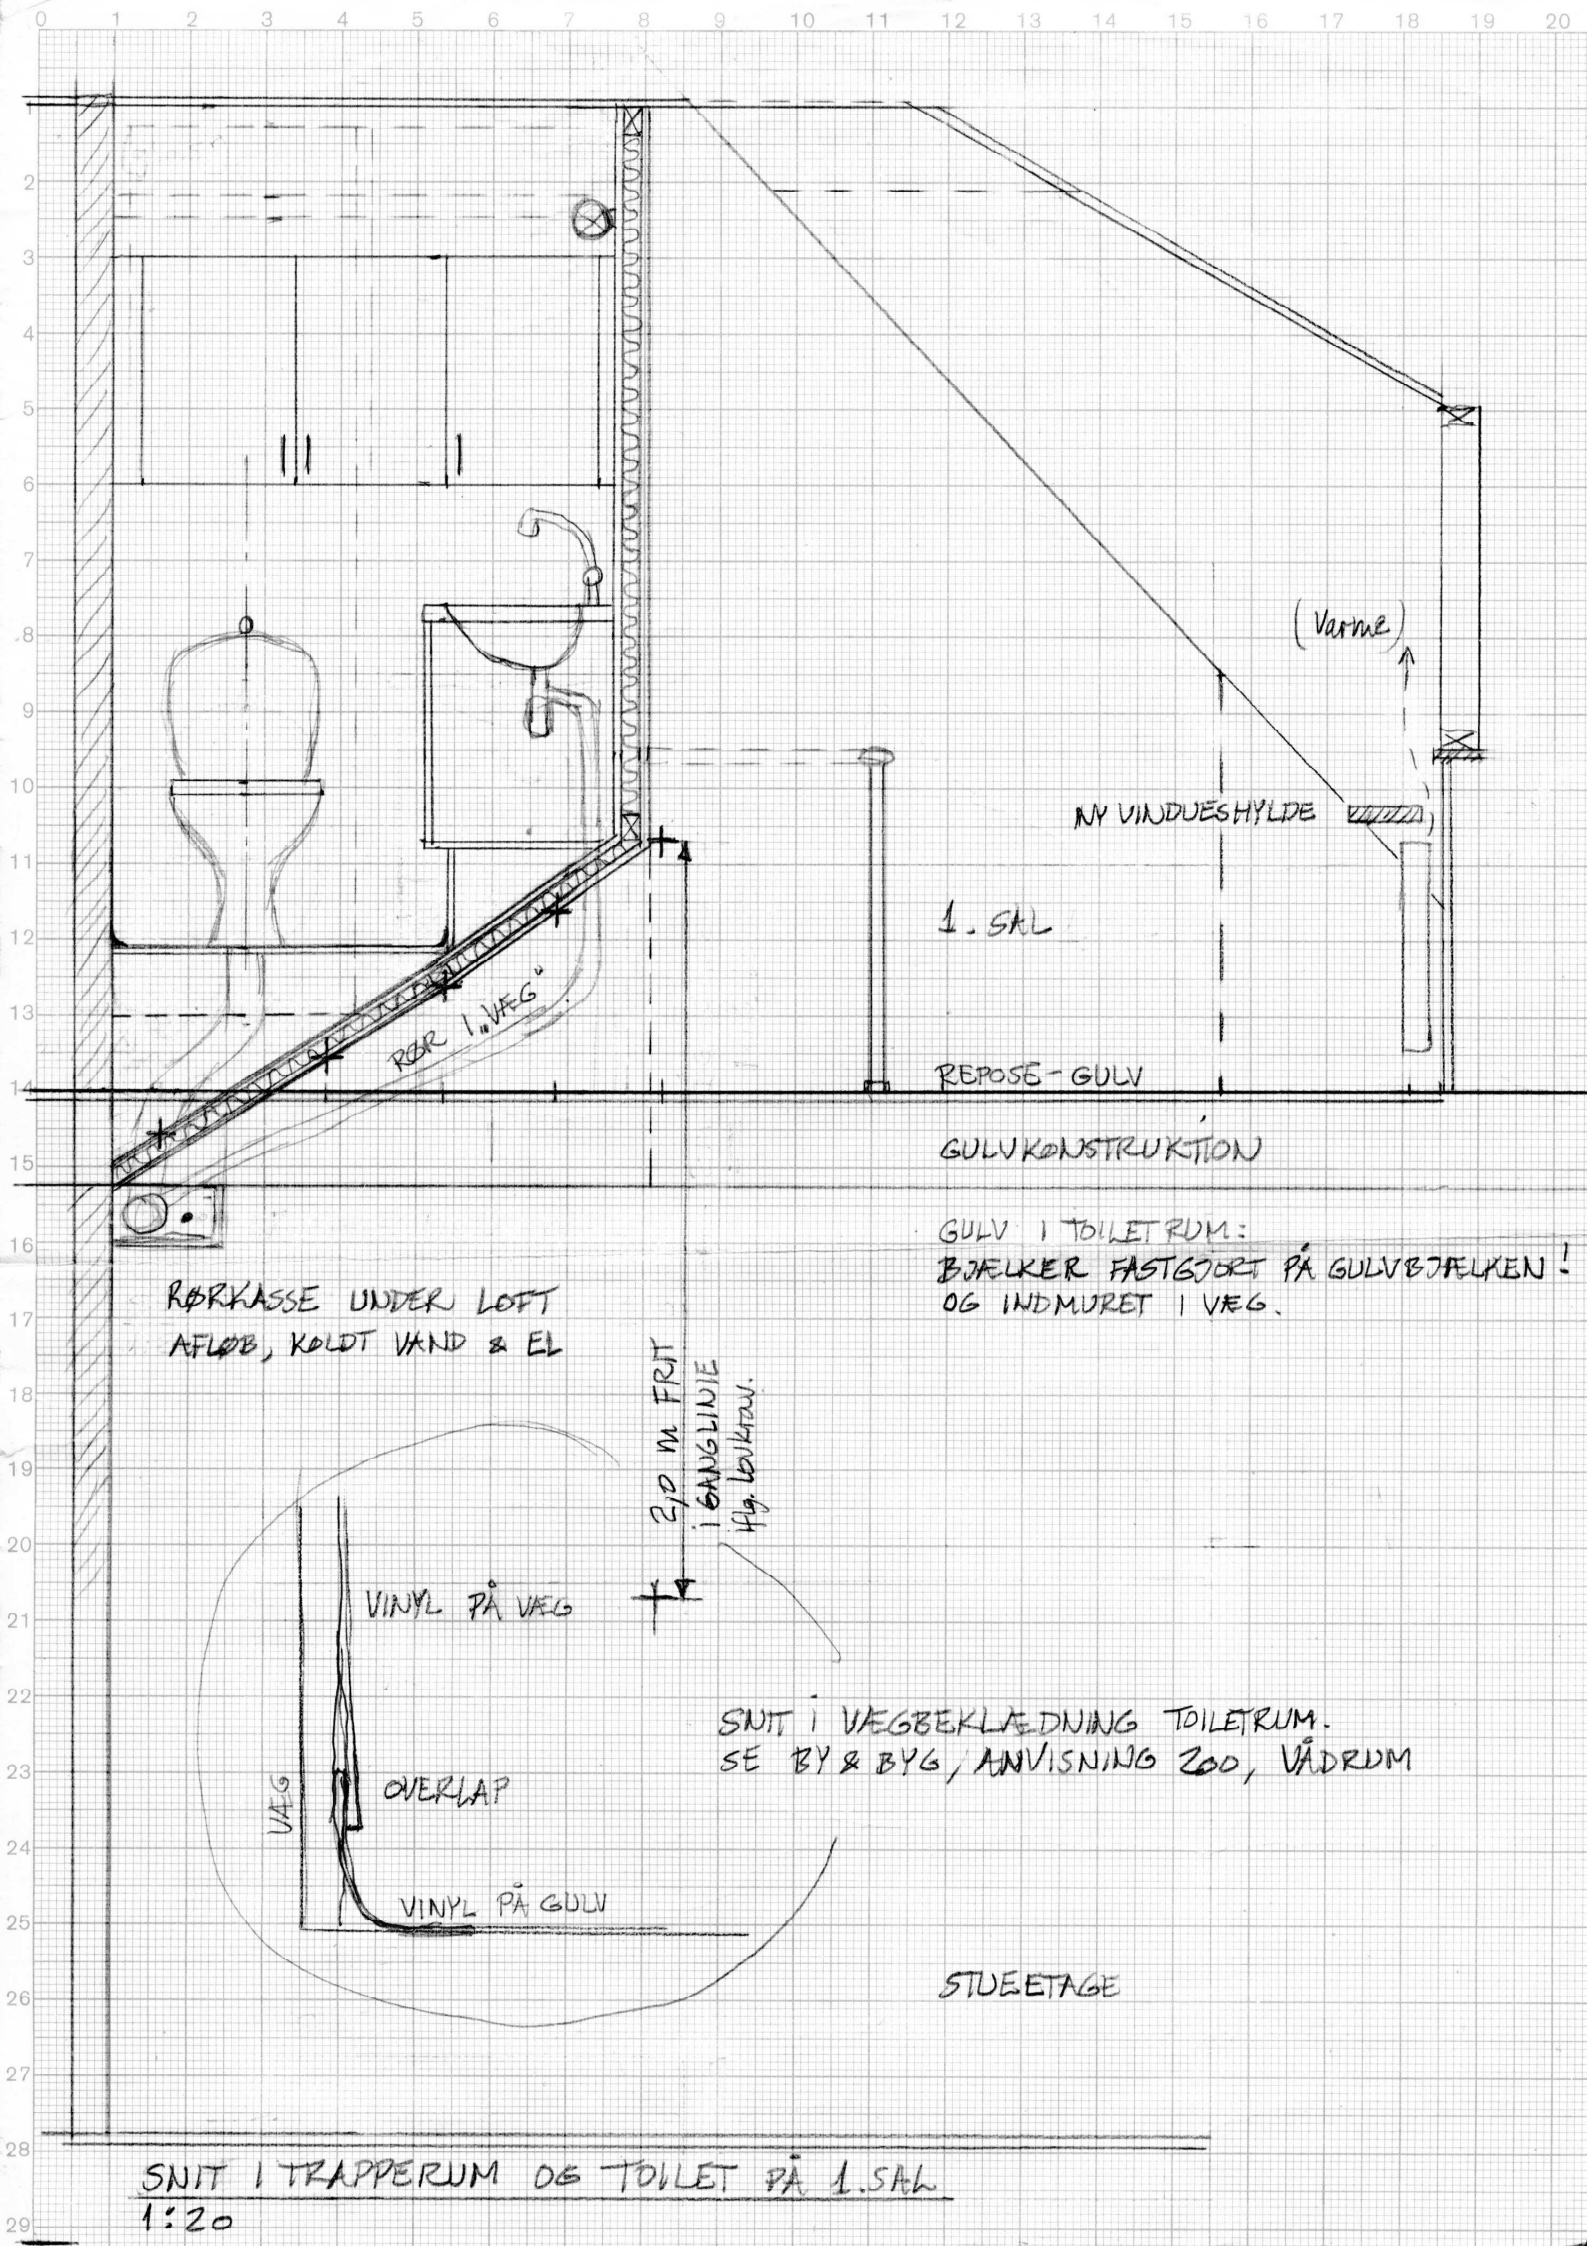 0 1 2 3 4 5 6 7 8 9 10 11 12 13 14 15 16 17 18 19 20
1
2
3
4
5
6
7
8
9
10
11
12
13
14
15
16
17
18
19
20
21
22
23
24
25
26
27
28
29
(Varme)
NY VINDUESHYLDE
1. SAL
RØR I „VÆG“
REPOSE-GULV
GULVKONSTRUKTION
GULV I TOILETRUM:
BJÆLKER FASTGJORT PÅ GULVBJÆLKEN!
OG INDMURET I VÆG.
RØRKASSE UNDER LOFT
AFLØB, KOLDT VAND & EL
2,0 M FRIT
I GANGLINIE
iflg. Lovkrav.
VINYL PÅ VÆG
SNIT I VÆGBEKLÆDNING TOILETRUM.
SE BY & BYG, ANVISNING 200, VÅDRUM
OVERLAP
VÆG
VINYL PÅ GULV
STUEETAGE
SNIT I TRAPPERUM OG TOILET PÅ 1. SAL
1:20